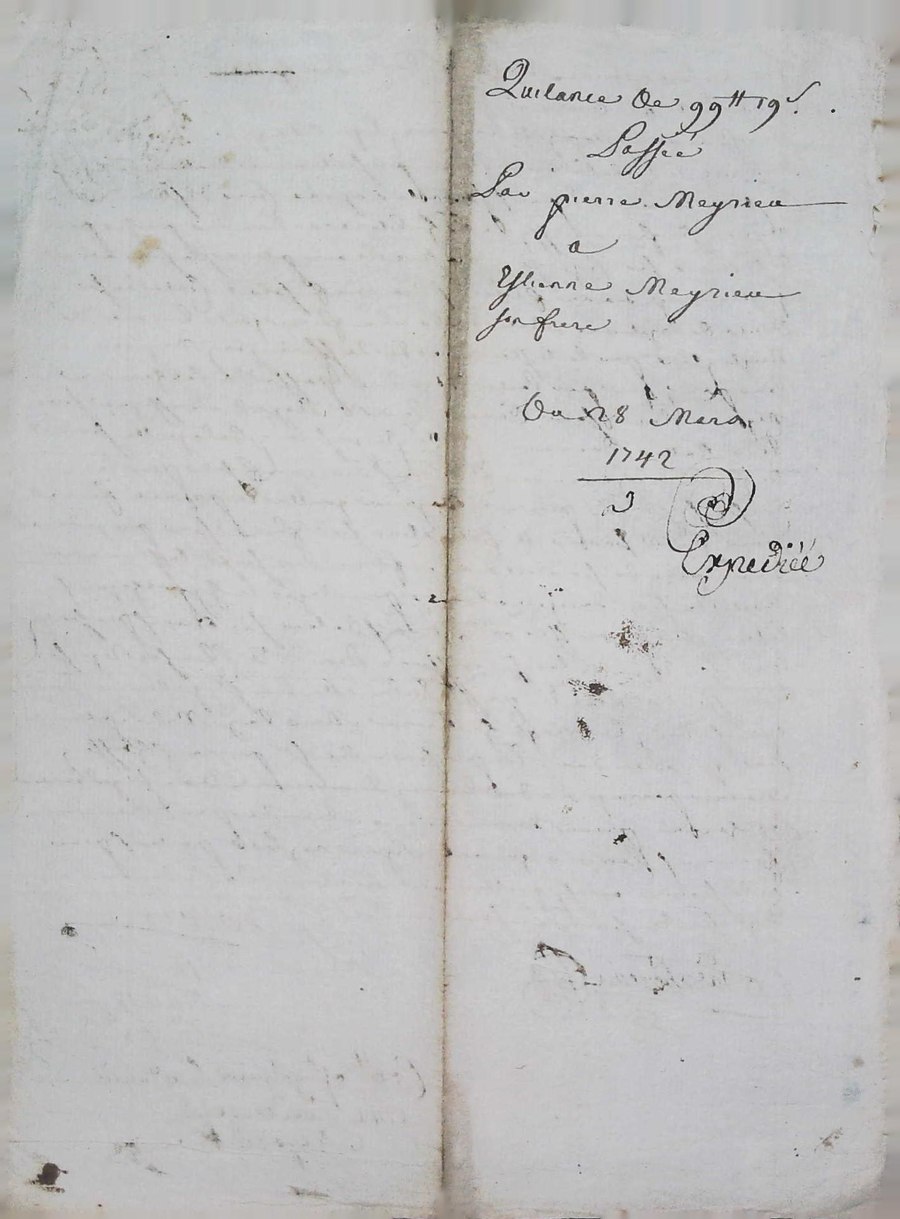 Quitance De 99ᵗᵗ 19ˢ.
Passée
Par pierre Meyrieu
a
Estienne Meyrieu
son frere
Du 28 Mars
1742
Expediéé